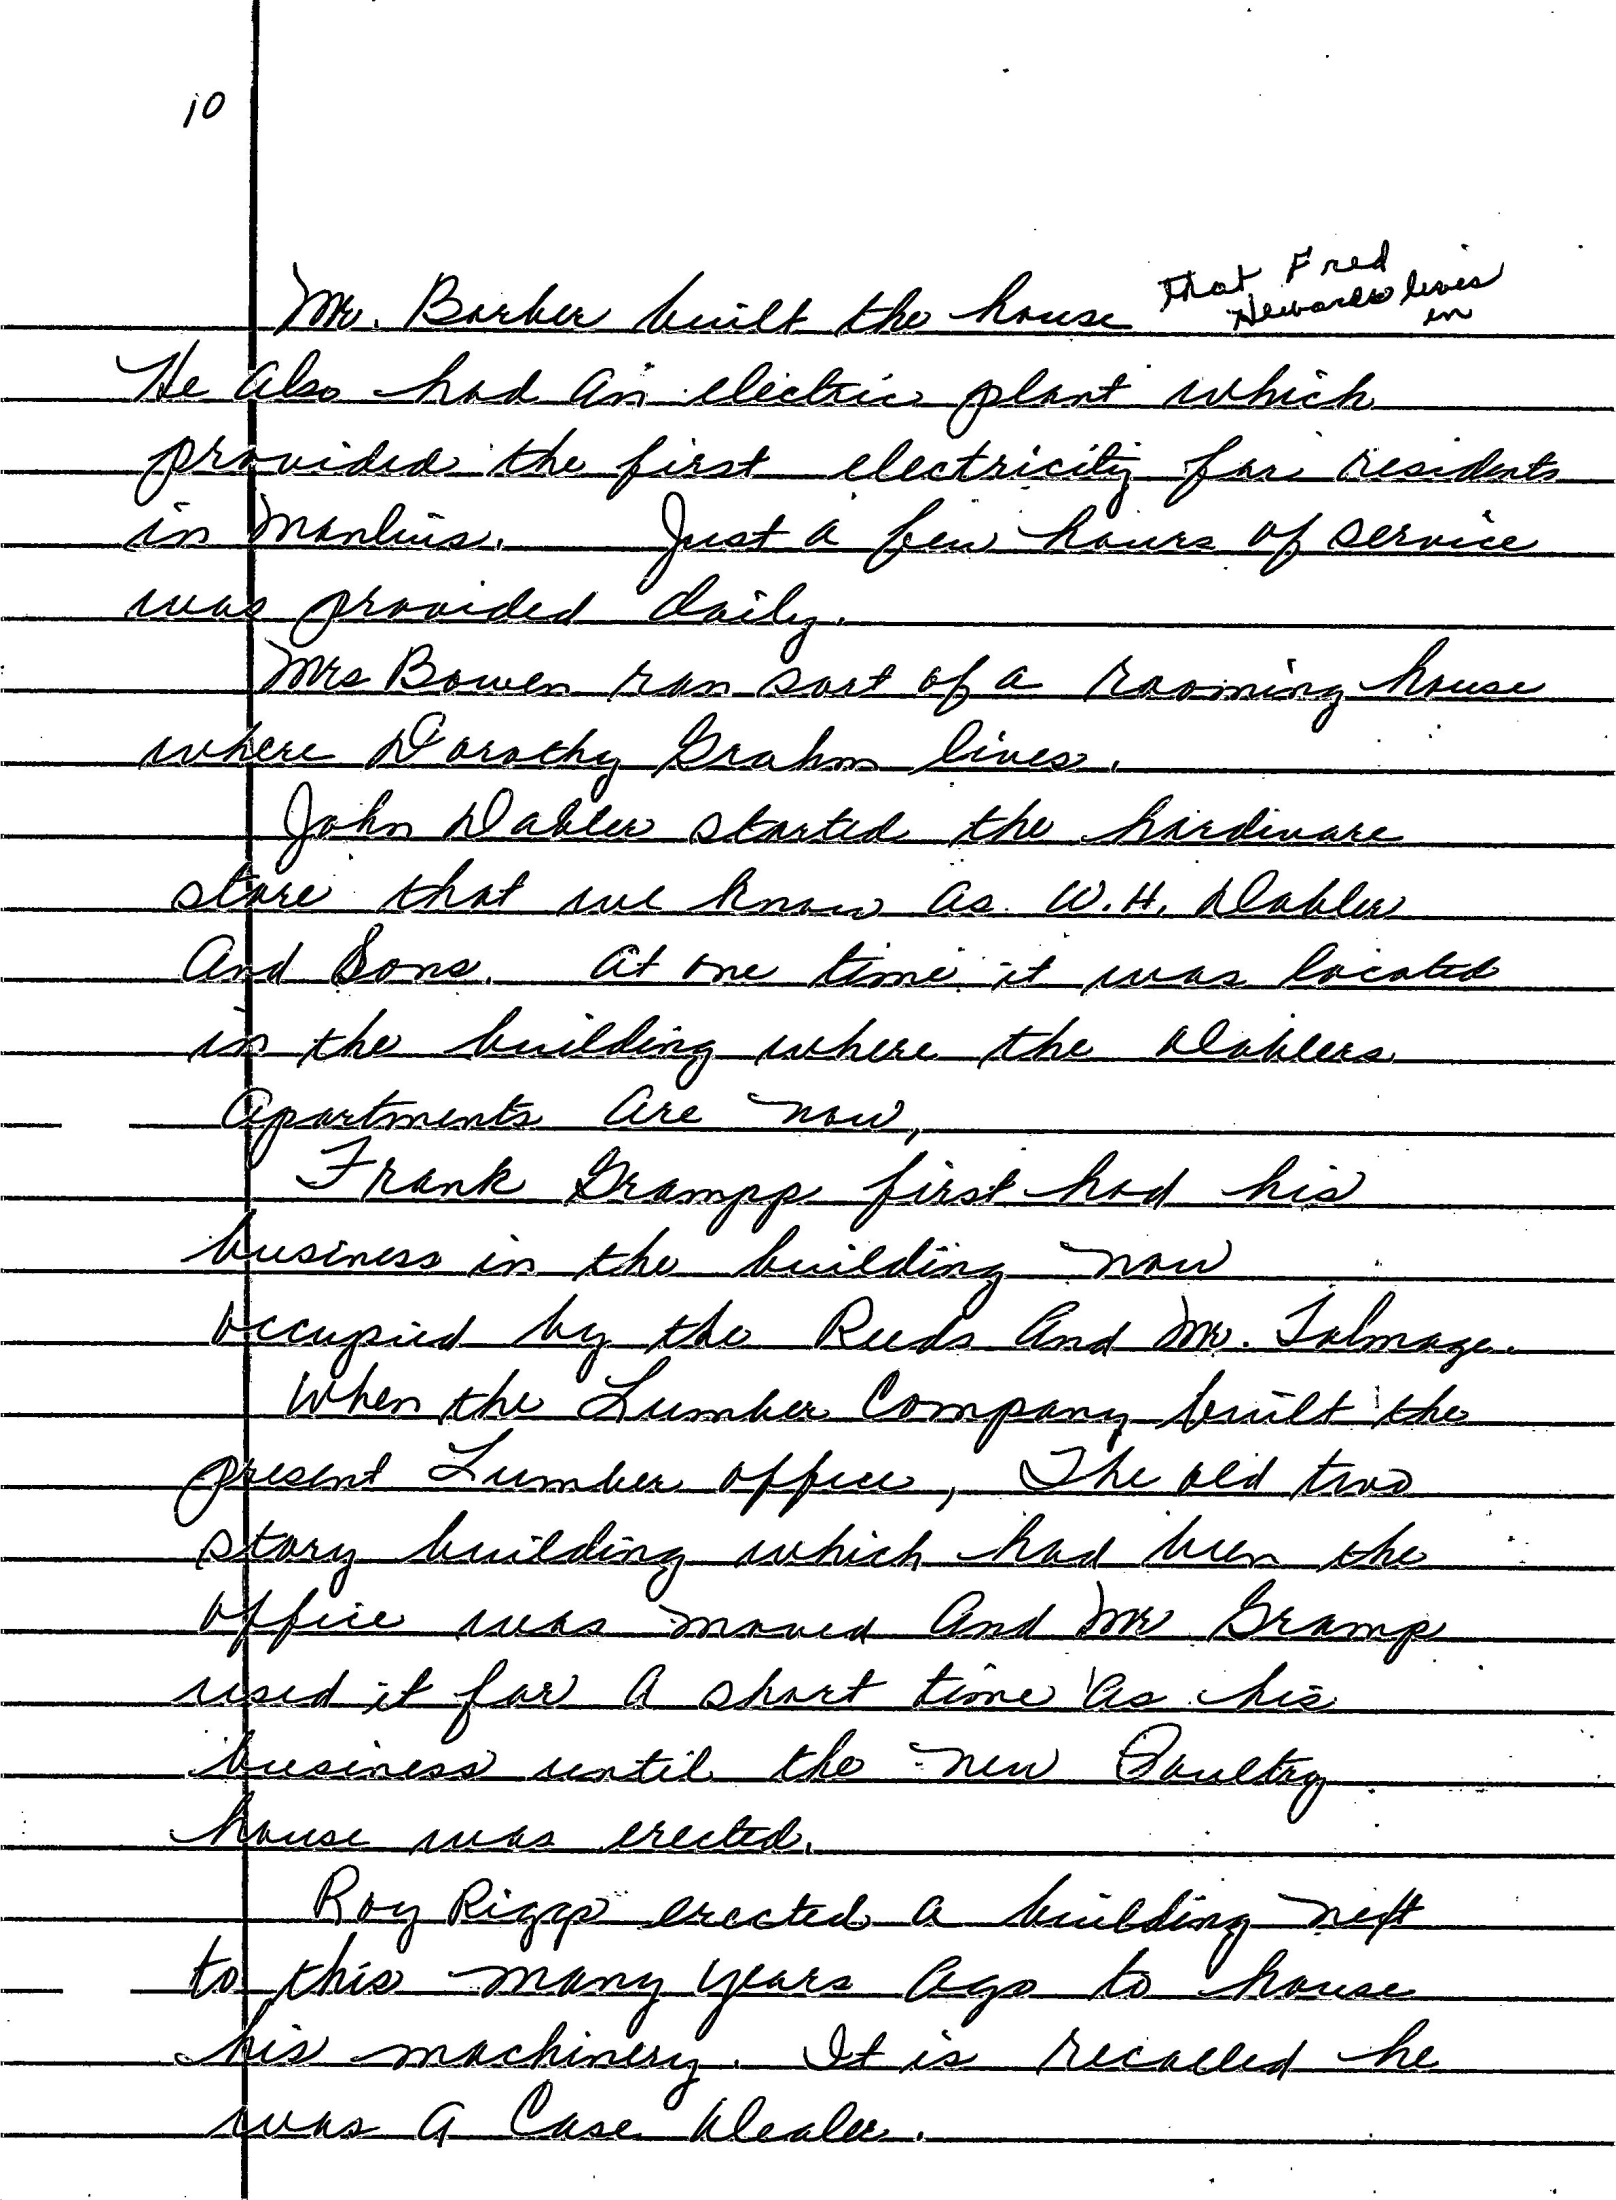 10
Mr. Barber built the house that Fred
lives
in
He also had an electric plant which
provided the first electricity for residents
in Manlius. Just a few hours of service
was provided daily.
Mrs Bowen ran sort of a rooming house
where Dorothy Grahm lives.
John Dabler started the hardware
store that we know as W.H. Dabler
And Sons. At one time it was located
in the building where the Dablers
Apartments are now,
Frank Grampp first had his
business in the building now
occupied by the Reeds And Mr. Talmage.
When the Lumber Company built the
present Lumber office, The old two
story building which had been the
office was moved And Mr Gramp
used it for a short time as his
business until the new Poultry
house was erected.
Roy Riggs erected a building next
to this many years ago to house
his machinery. It is recalled he
was a Case Dealer.